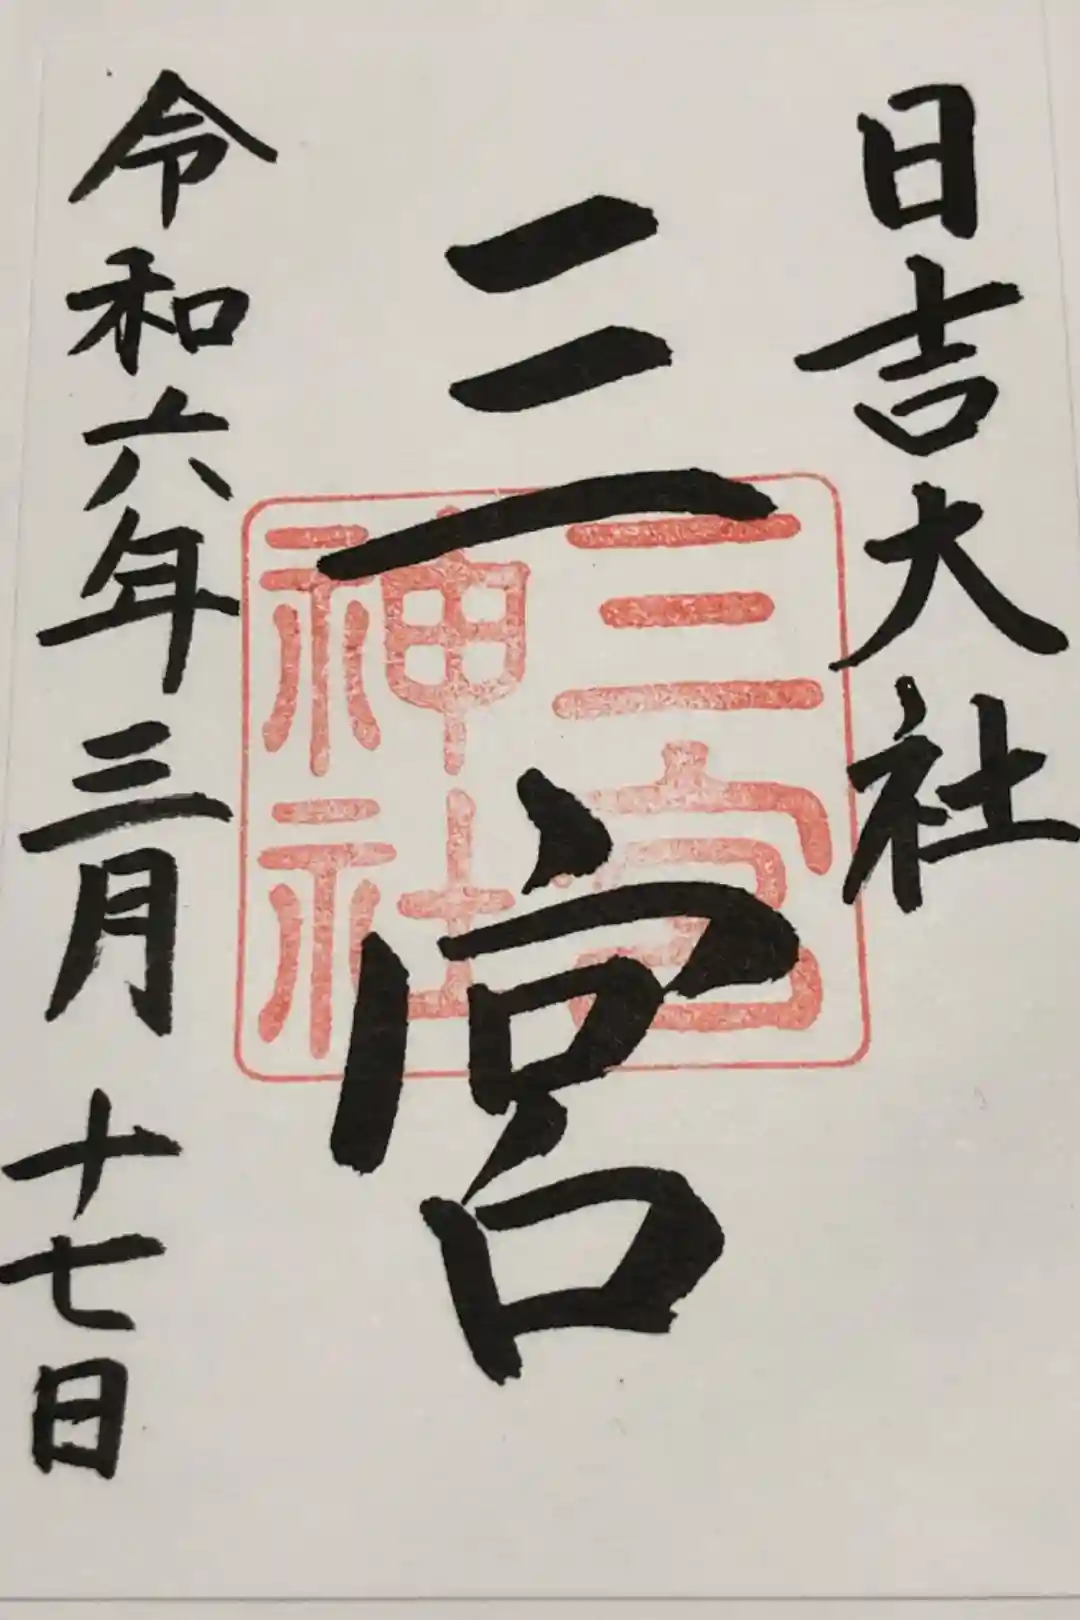 日吉大社
三宮
三宮
神社
令和六年三月十七日